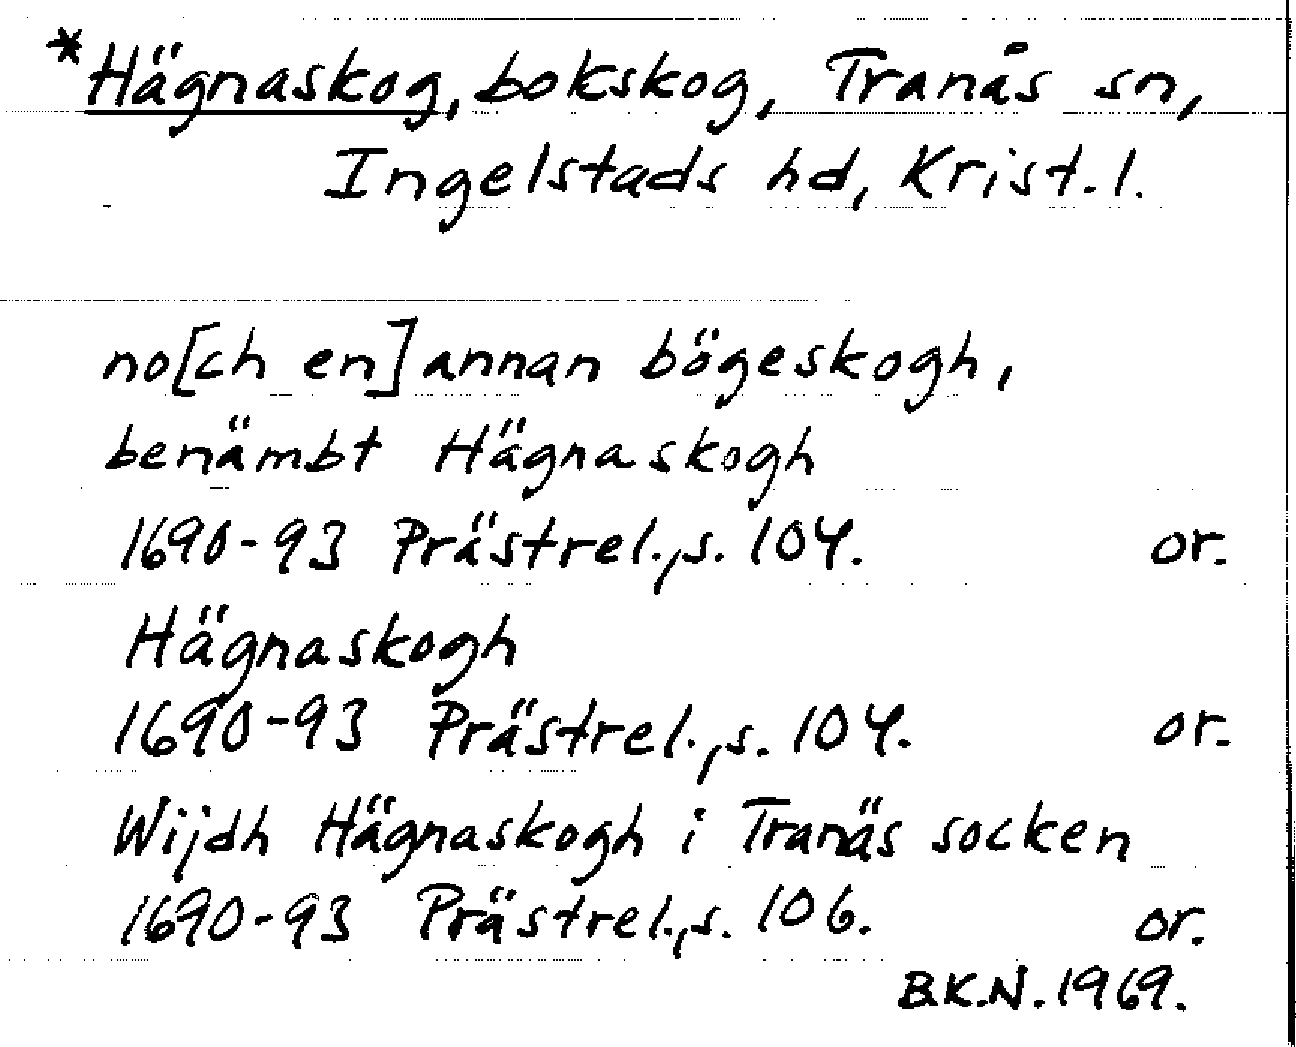 *Hägnaskog, bokskog, Tranås sn,
Ingelstads hd, Krist. l.
no[ch en] annan bögeskogh,
benämbt Hägnaskogh
1690-93 Prästrel., s. 104. or.
Hägnaskogh
1690-93 Prästrel., s. 104. or.
Wijdh Hägnaskogh i Tranäs socken
1690-93 Prästrel., s. 106. or.
B.K.N. 1969.